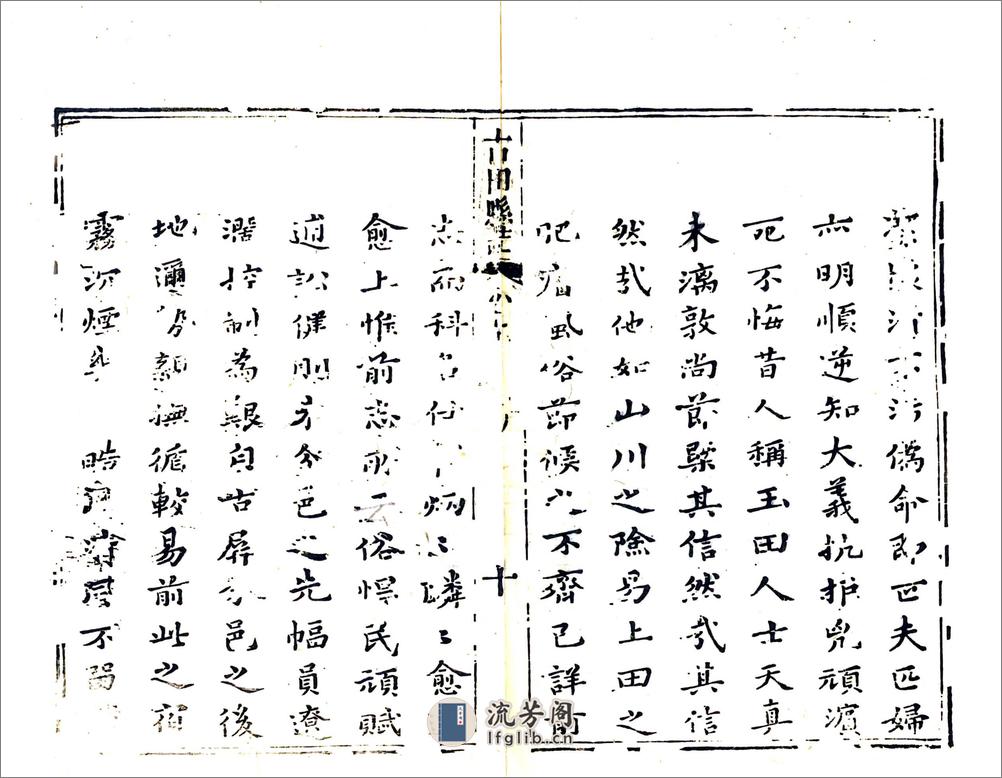 不污偽命即匹夫匹婦
亦明順逆知大義抗护兇頑濵
死不悔昔人稱玉田人士天真
未漓敦尚節槩其信然哉其信
然哉他如山川之險易土田之
肥瘠風俗節候之不齊已詳前
古田縣志 十
志而科名仕炳〻麟〻愈
愈上惟前志所云俗悍民頑賦
逋訟健則分邑之先幅員遼
濶控制為艱自古屏分邑之後
地邇勢親撫循較易前此之宿
霧沉煙 皓不
流芳阁
lfglib.com